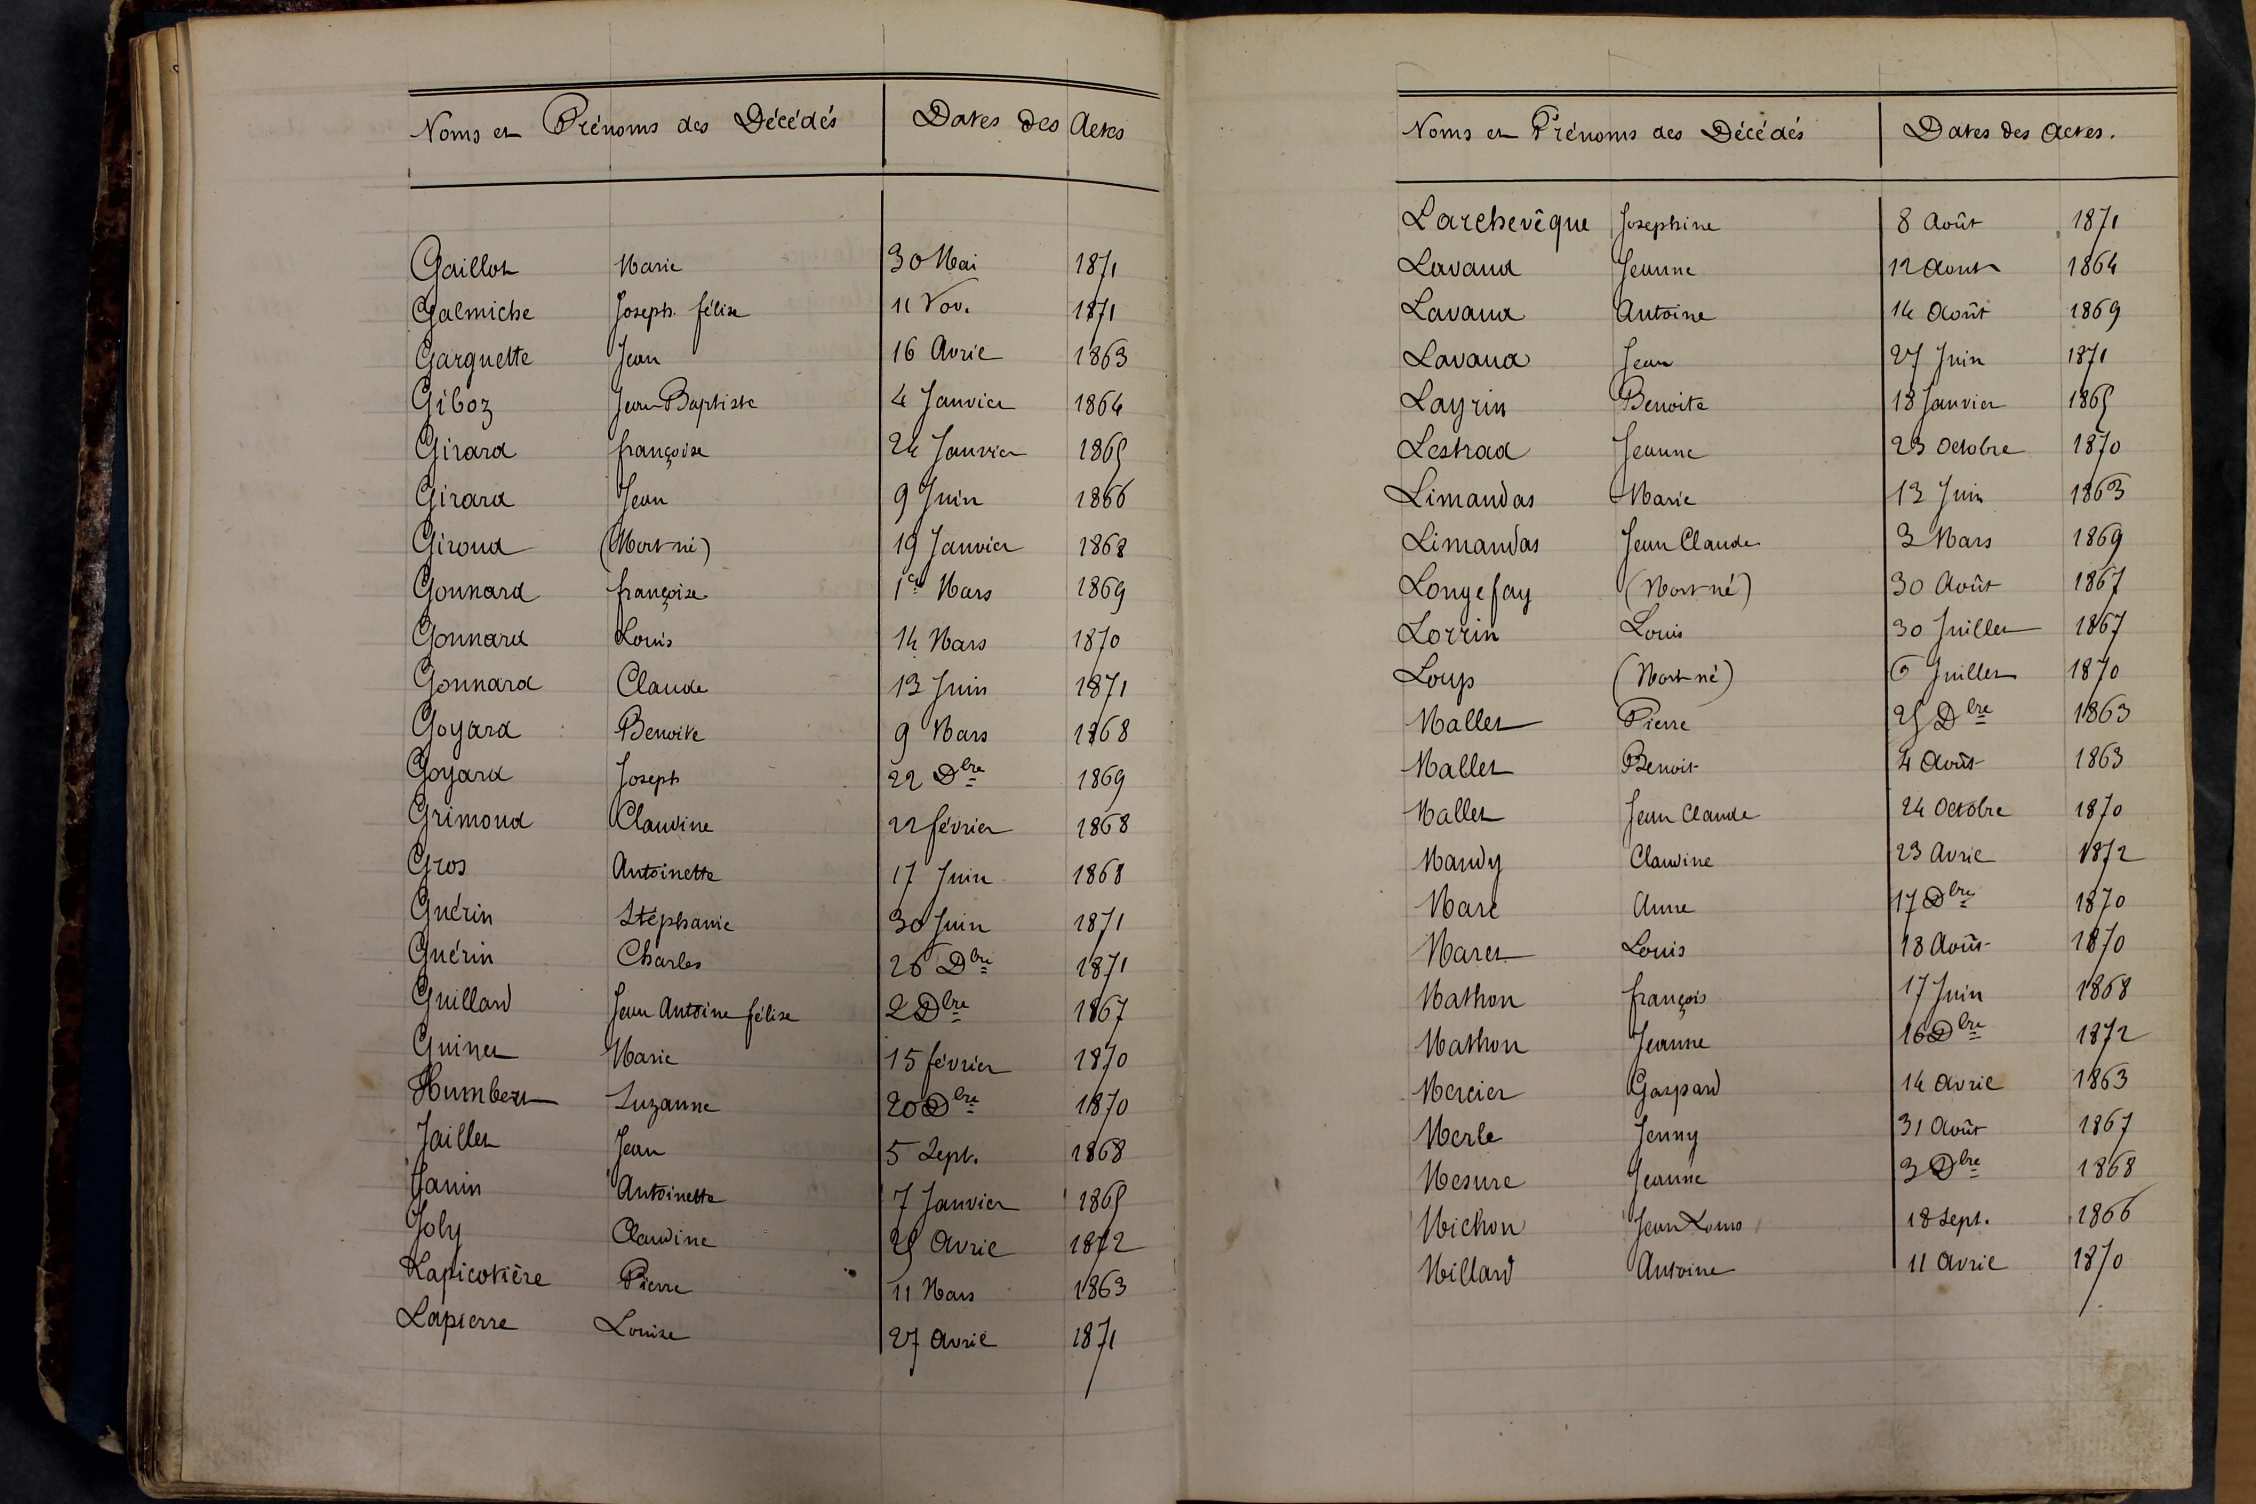 Noms et Prénoms des Décédés Dates des Actes
Gaillot Marie 30 Mai 1871
Galmiche Joseph félix 11 Nov. 1871
Garguette Jean 16 Avril 1863
Giboz Jean-Baptiste 4 Janvier 1864
Girard françoise 24 Janvier 1865
Girard Jean 9 Juin 1866
Giroud (Mort-né) 19 Janvier 1868
Gonnard françoise 1er Mars 1869
Gonnard Louis 14 Mars 1870
Gonnard Claude 13 Juin 1871
Goyard Benoite 9 Mars 1868
Goyard Joseph 22 Dbre 1869
Grimond Claudine 22 février 1868
Gros Antoinette 17 Juin 1868
Guérin Stéphanie 30 Juin 1871
Guérin Charles 26 Dbre 1871
Guillard Jean Antoine félix 2 Dbre 1867
Guinet Marie 15 février 1870
Humbert Suzanne 20 Dbre 1870
Jaillet Jean 5 Sept. 1868
Janin Antoinette 7 Janvier 1865
Joly Claudine 25 Avril 1872
Lapicotière Pierre 11 Mars 1863
Lapierre Louise 27 Avril 1871
Noms et Prénoms des Décédés Dates des Actes.
Larchevêque Josephine 8 Août 1871
Lavaud Jeanne 12 Aout 1864
Lavaud Antoine 14 Août 1869
Lavaud Jean 27 Juin 1871
Layrin Benoite 18 Janvier 1865
Lestrad Jeanne 23 Octobre 1870
Limandas Marie 13 Juin 1863
Limandas Jean Claude 3 Mars 1869
Longefay (Mort né) 30 Août 1867
Lorrin Louis 30 Juillet 1867
Loup (Mort-né) 6 Juillet 1870
Mallet Pierre 25 Dbre 1863
Mallet Benoit 4 Août 1863
Mallet Jean Claude 24 Octobre 1870
Mandy Claudine 23 Avril 1872
Marc Anne 17 Dbre 1870
Maret Louis 18 Août 1870
Mathon françois 17 Juin 1868
Mathon Jeanne 16 Dbre 1872
Mercier Gaspard 14 Avril 1863
Merle Jenny 31 Août 1867
Mesure Jeanne 3 Dbre 1868
Michon Jean Louis 18 Sept. 1866
Millard Antoine 11 Avril 1870